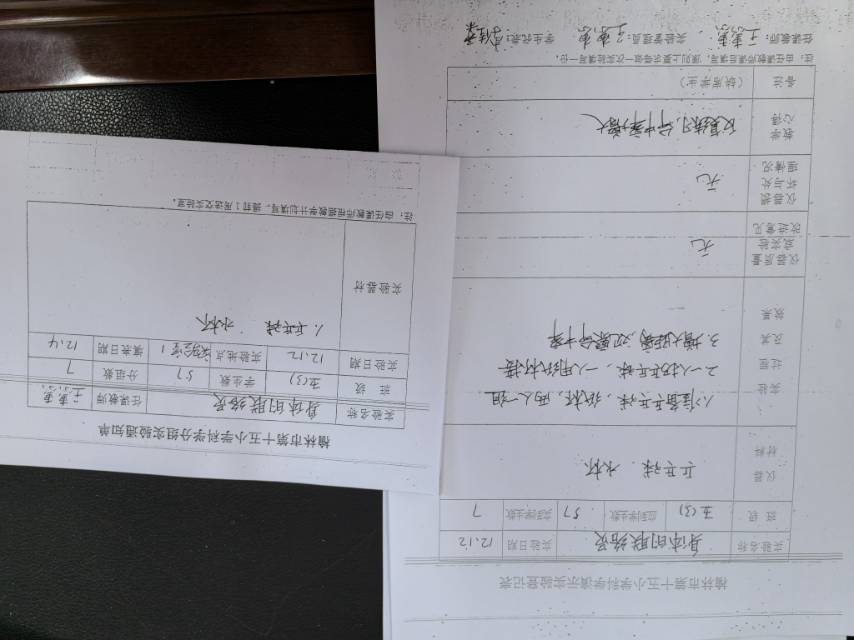 榆林市第十五小学科学分组实验通知单
实验名称 身体的联络员 任课教师
班级 五(3) 学生数 57 分组数 7
实验日期 12.12 实验地点 实验室1 填表日期 12.4
实验器材 1.乒乓球 水杯
注：由任课教师根据教学计划填写，提前1周送交实验室。
榆林市第十五小学科学演示实验登记表
实验名称 身体的联络员 实验日期 12.12
班级 五(3) 应到学生数 57 实到学生数 7
仪器材料 乒乓球 水杯
实验过程及其效果
1.准备乒乓球，纸杯，两人一组
2.一人扔乒乓球，一人用纸杯接
3.增大距离，观察命中率
仪器质量或实验改进意见 无
仪器损坏与处理情况 无
教学心得 反复练习，命中率增大
备注 (缺席学生)
注：由任课教师课后填写，原则上要求每做一次实验填写一份。
任课教师： 实验管理员： 学生代表：